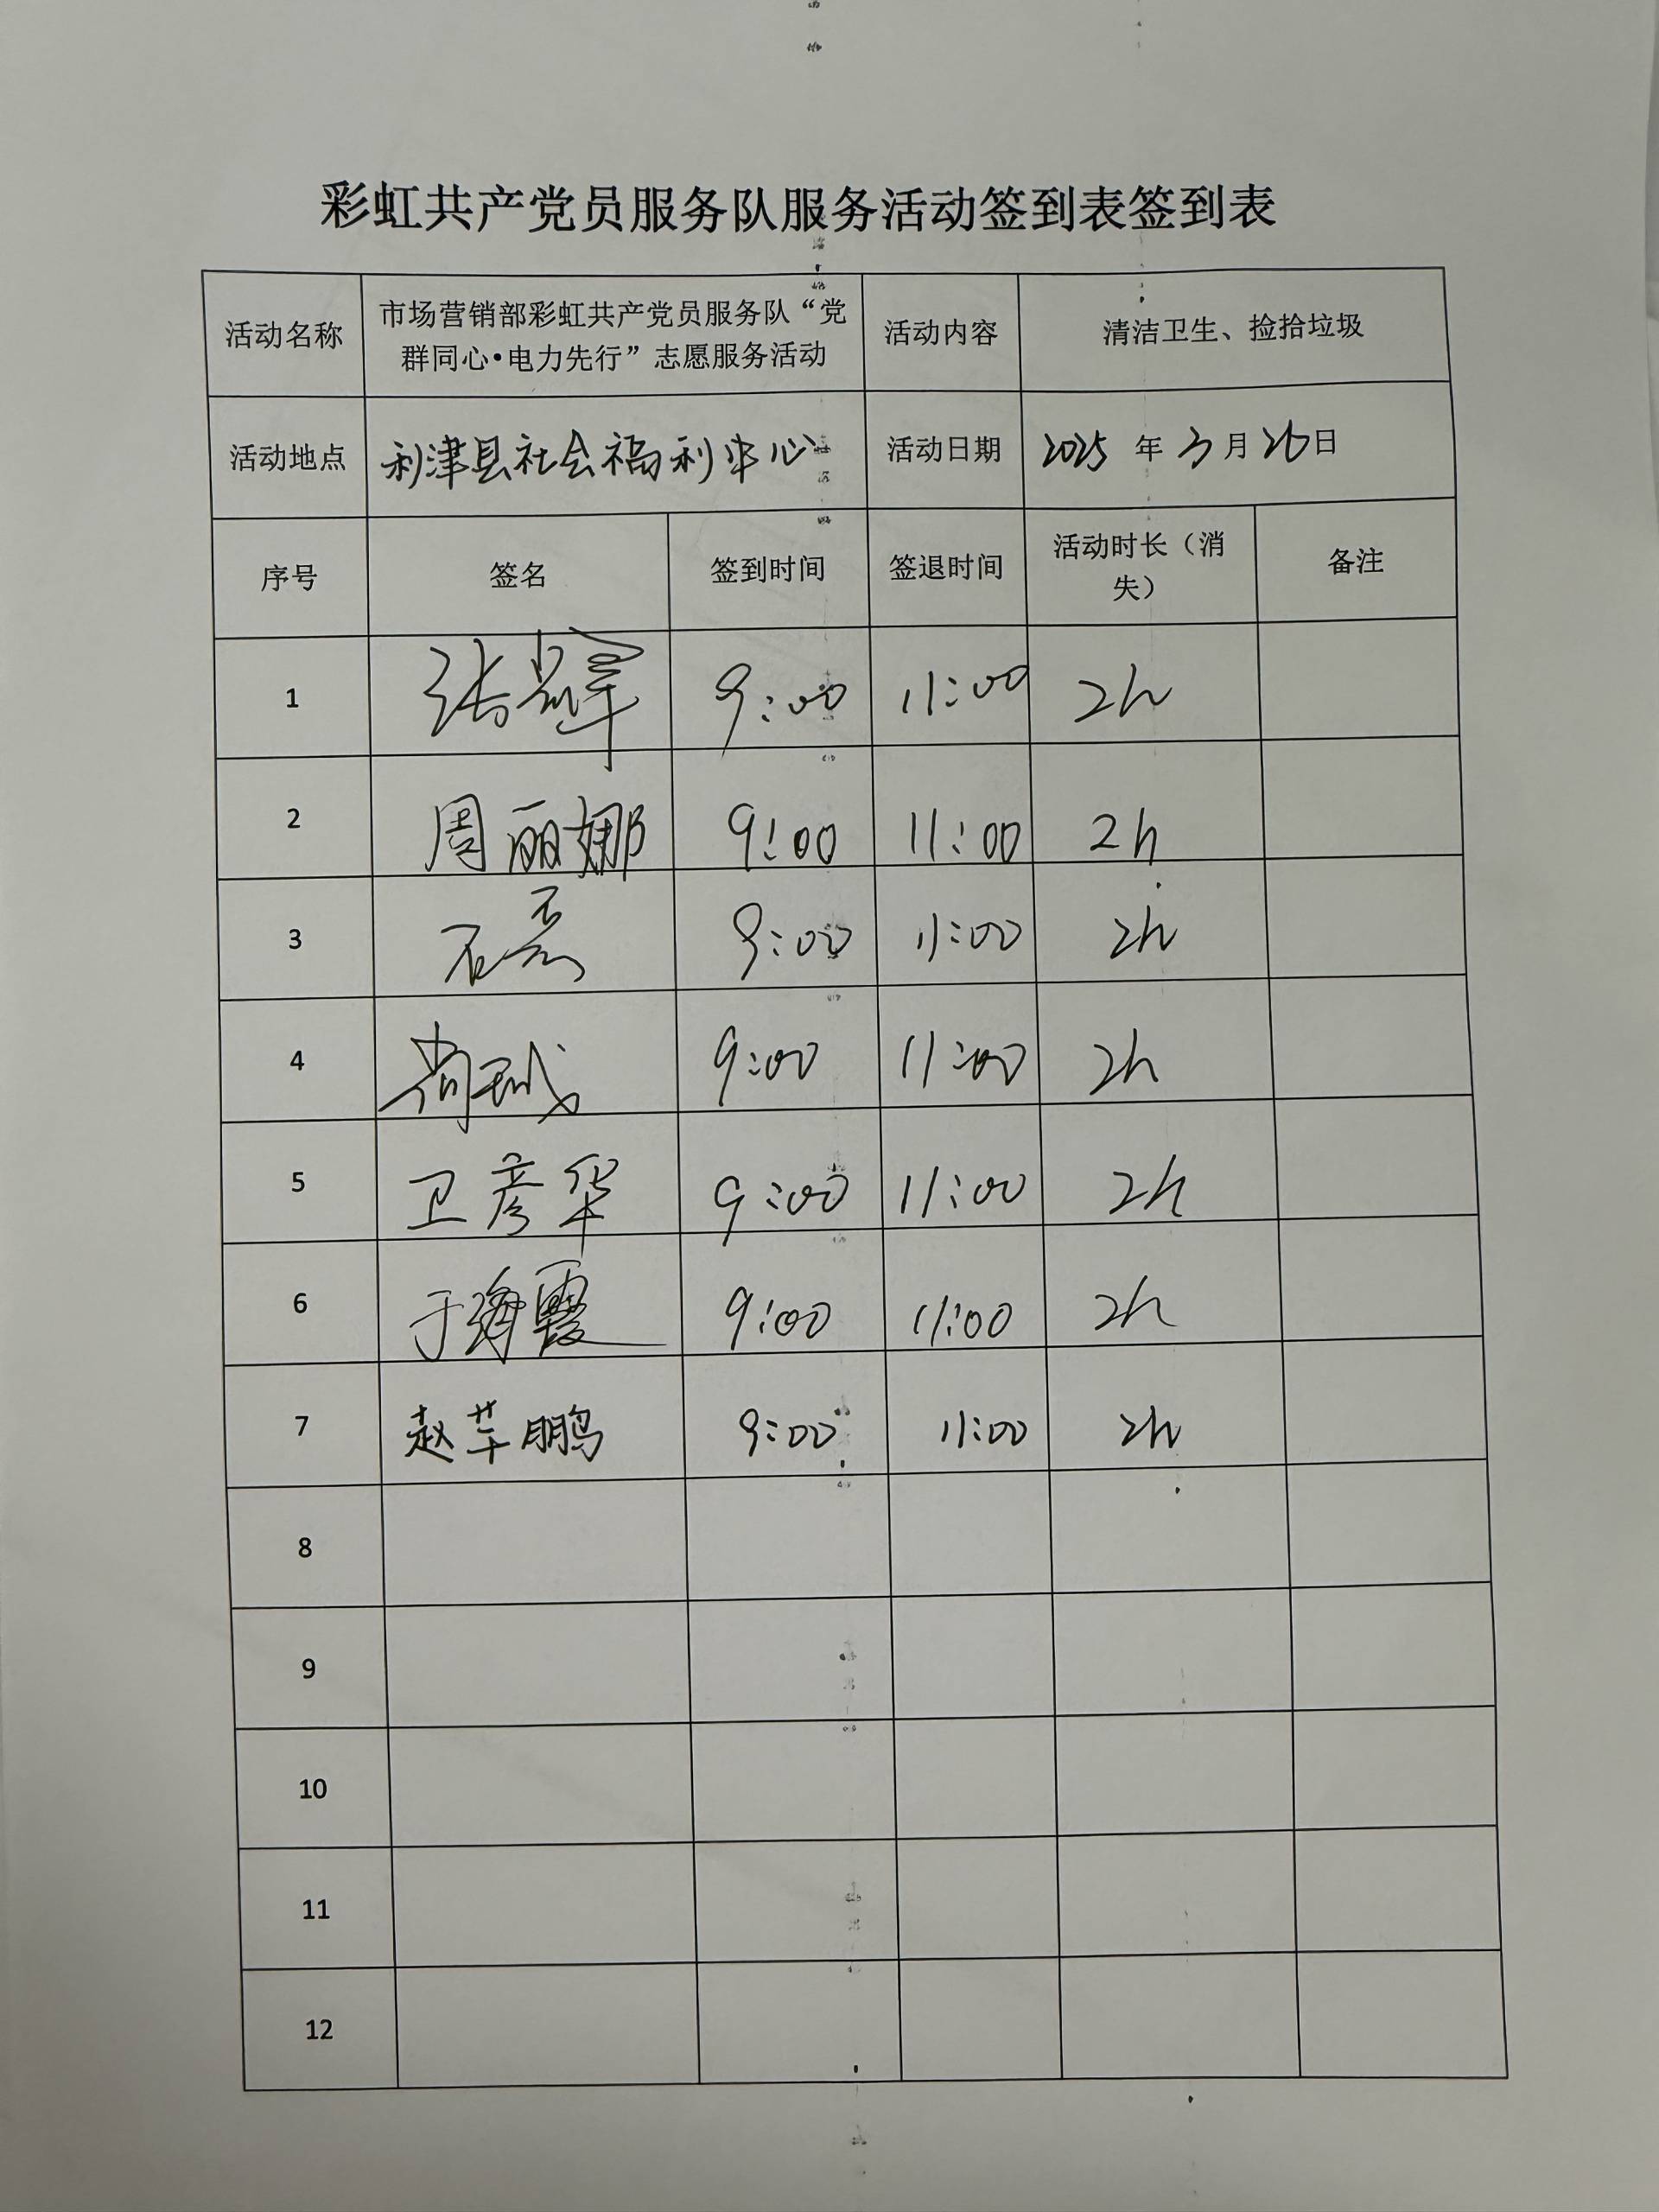 彩虹共产党员服务队服务活动签到表签到表
活动名称 市场营销部彩虹共产党员服务队“党 活动内容 清洁卫生、捡拾垃圾
群同心•电力先行”志愿服务活动
活动地点 利津县社会福利中心 活动日期 2025 年 3 月 26 日
序号 签名 签到时间 签退时间 活动时长（消 备注
失）
1 张 9:00 11:00 2h
2 周丽娜 9:00 11:00 2h
3 石磊 9:00 11:00 2h
4 尚 9:00 11:00 2h
5 卫彦华 9:00 11:00 2h
6 于海霞 9:00 11:00 2h
7 赵苹鹏 9:00 11:00 2h
8
9
10
11
12